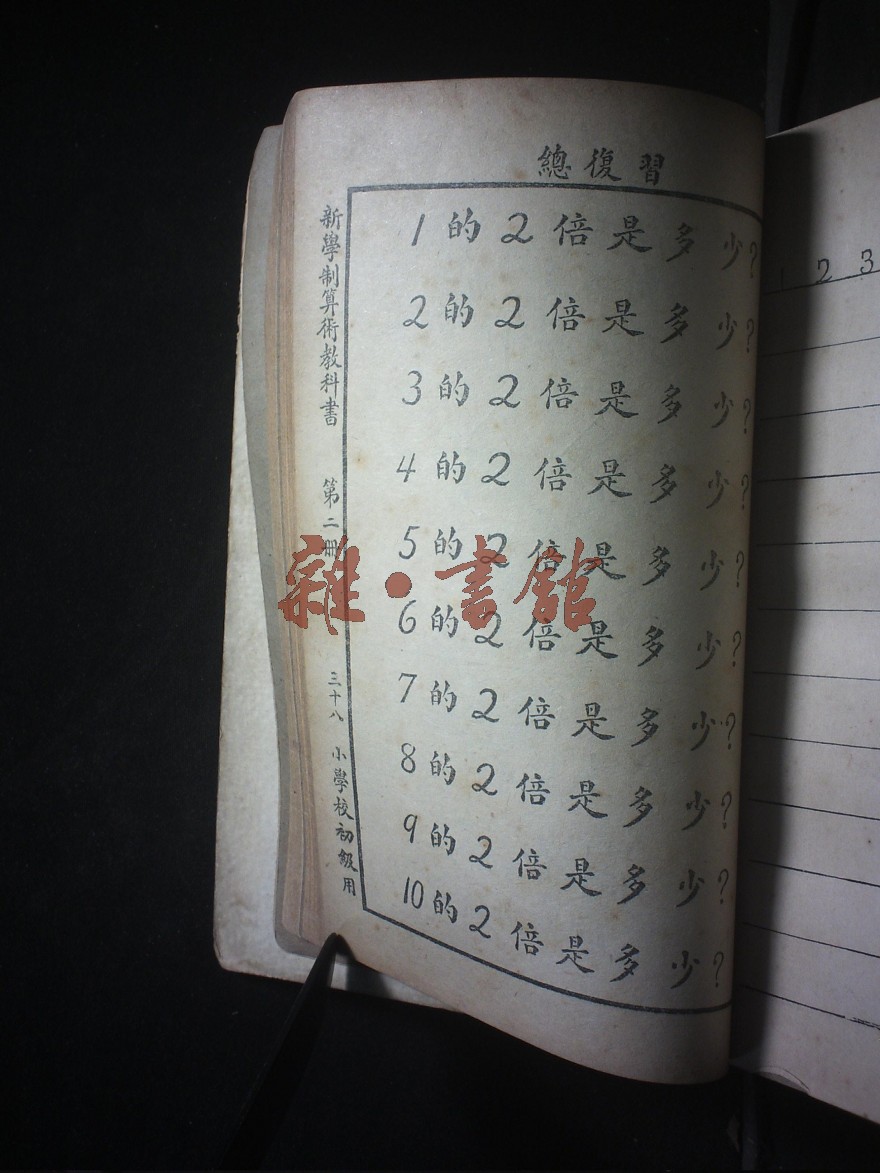 總復習
1的2倍是多少?
2的2倍是多少?
3的2倍是多少?
4的2倍是多少?
5的2倍是多少?
6的2倍是多少?
7的2倍是多少?
8的2倍是多少?
9的2倍是多少?
10的2倍是多少?
新學制算術教科書 第二册 三十八 小學校初級用
雜·書館
1 2 3